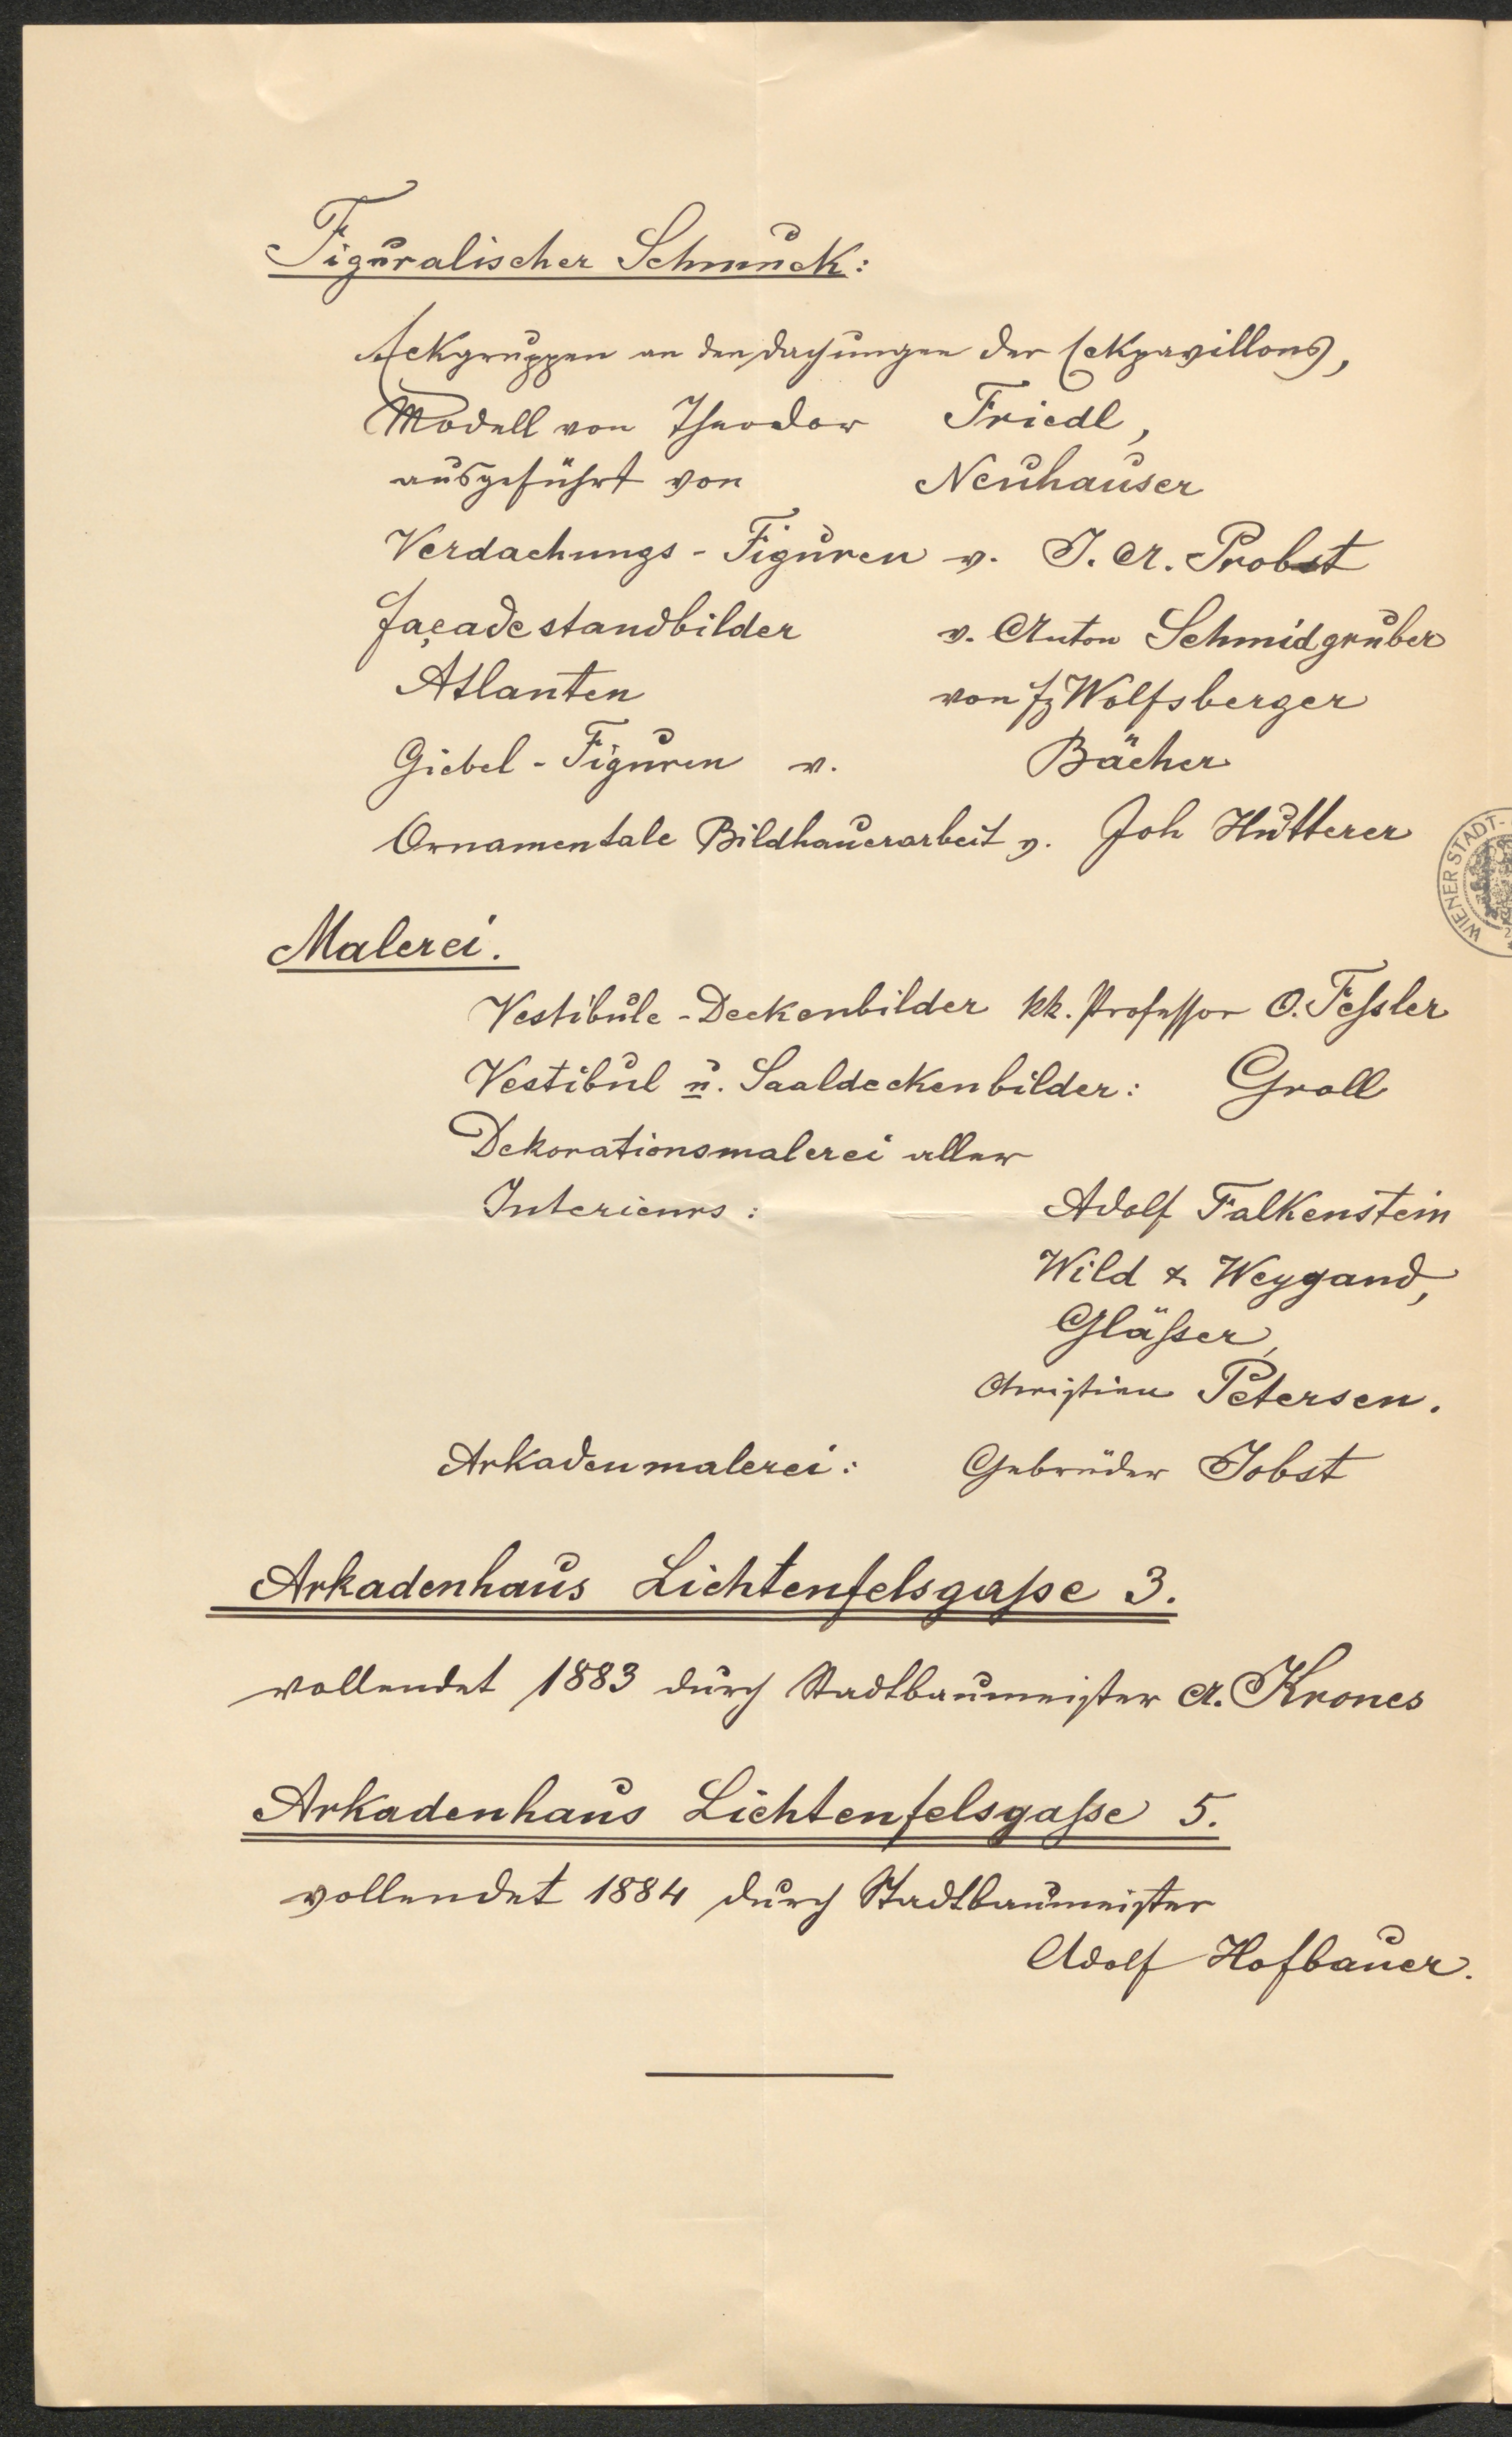 Figuralischer Schmuck:
Eckgruppen an den Dachungen der Eckpavillons,
Modell von Theodor Friedl,
ausgeführt von Neuhauser
Verdachungs-Figuren v. J. A. Probst
façadestandbilder v. Anton Schmidgruber
Atlanten von Fz Wolfsberger
Giebel-Figuren v. Bächer
Ornamentale Bildhauerarbeit v. Joh Hutterer
WIENER STADT-
Malerei.
Vestibule-Deckenbilder kk. Professor O. Feßler
Vestibul u. Saaldeckenbilder: Groll
Dekorationsmalerei aller
Interieurs: Adolf Falkenstein
Wild & Weygand,
Gläßer,
Christian Petersen.
Arkadenmalerei: Gebrüder Jobst
Arkadenhaus Lichtenfelsgaße 3.
vollendet 1883 durch Stadtbaumeister A. Krones
Arkadenhaus Lichtenfelsgaße 5.
vollendet 1884 durch Stadtbaumeister
Adolf Hofbauer.